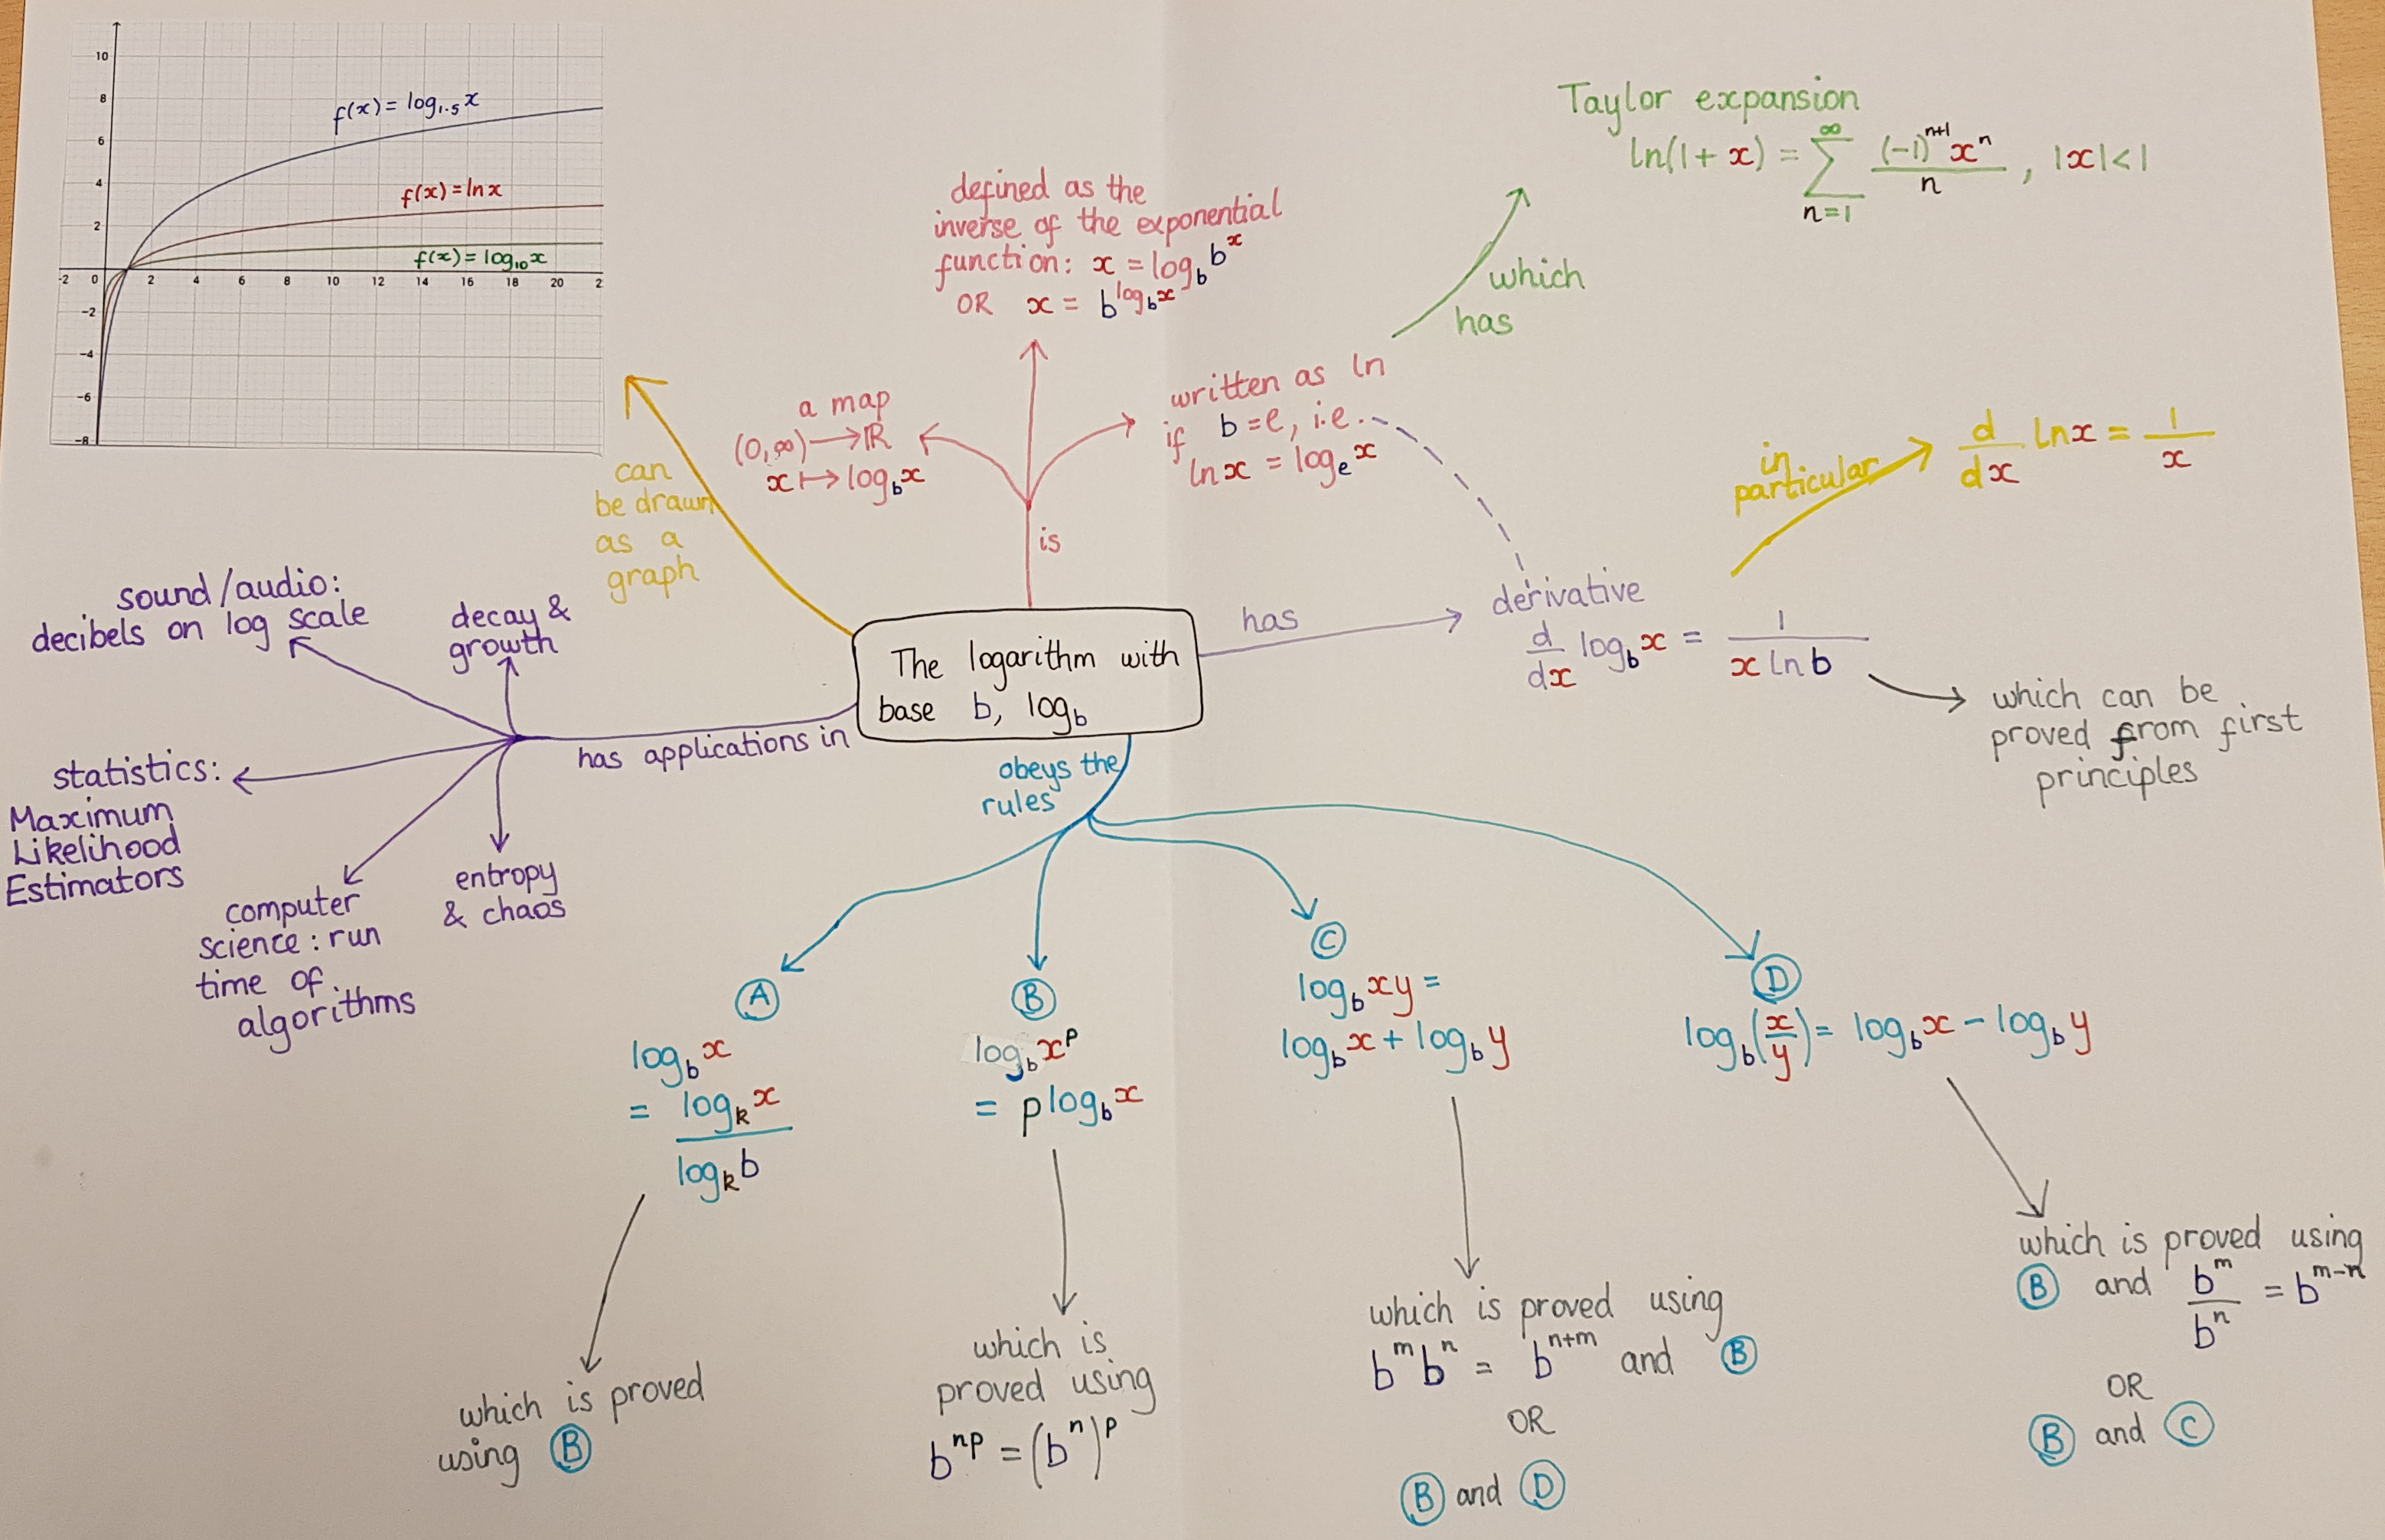 10
8
6
4
2
-2 0 2 4 6 8 10 12 14 16 18 20 2
-2
-4
-6
-8
f(x) = log₁.₅ x
f(x) = ln x
f(x) = log₁₀ x
can
be drawn
as a
graph
a map
(0,∞) → ℝ
x ↦ log_b x
defined as the
inverse of the exponential
function: x = log_b b^x
OR x = b^(log_b x)
is
written as ln
if b = e, i.e.
ln x = log_e x
which
has
Taylor expansion
ln(1 + x) = ∑_{n=1}^{∞} (-1)^{n+1} x^n / n , |x| < 1
The logarithm with
base b, log_b
has
derivative
d/dx log_b x = 1/(x ln b)
in
particular
d/dx ln x = 1/x
which can be
proved from first
principles
has applications in
sound/audio:
decibels on log scale
decay &
growth
statistics:
Maximum
Likelihood
Estimators
computer
science: run
time of
algorithms
entropy
& chaos
obeys the
rules
A
log_b x
= log_k x / log_k b
which is proved
using B
B
log_b x^p
= p log_b x
which is
proved using
b^{np} = (b^n)^p
C
log_b xy =
log_b x + log_b y
which is proved using
b^m b^n = b^{n+m} and B
OR
B and D
D
log_b (x/y) = log_b x - log_b y
which is proved using
B and b^m / b^n = b^{m-n}
OR
B and C